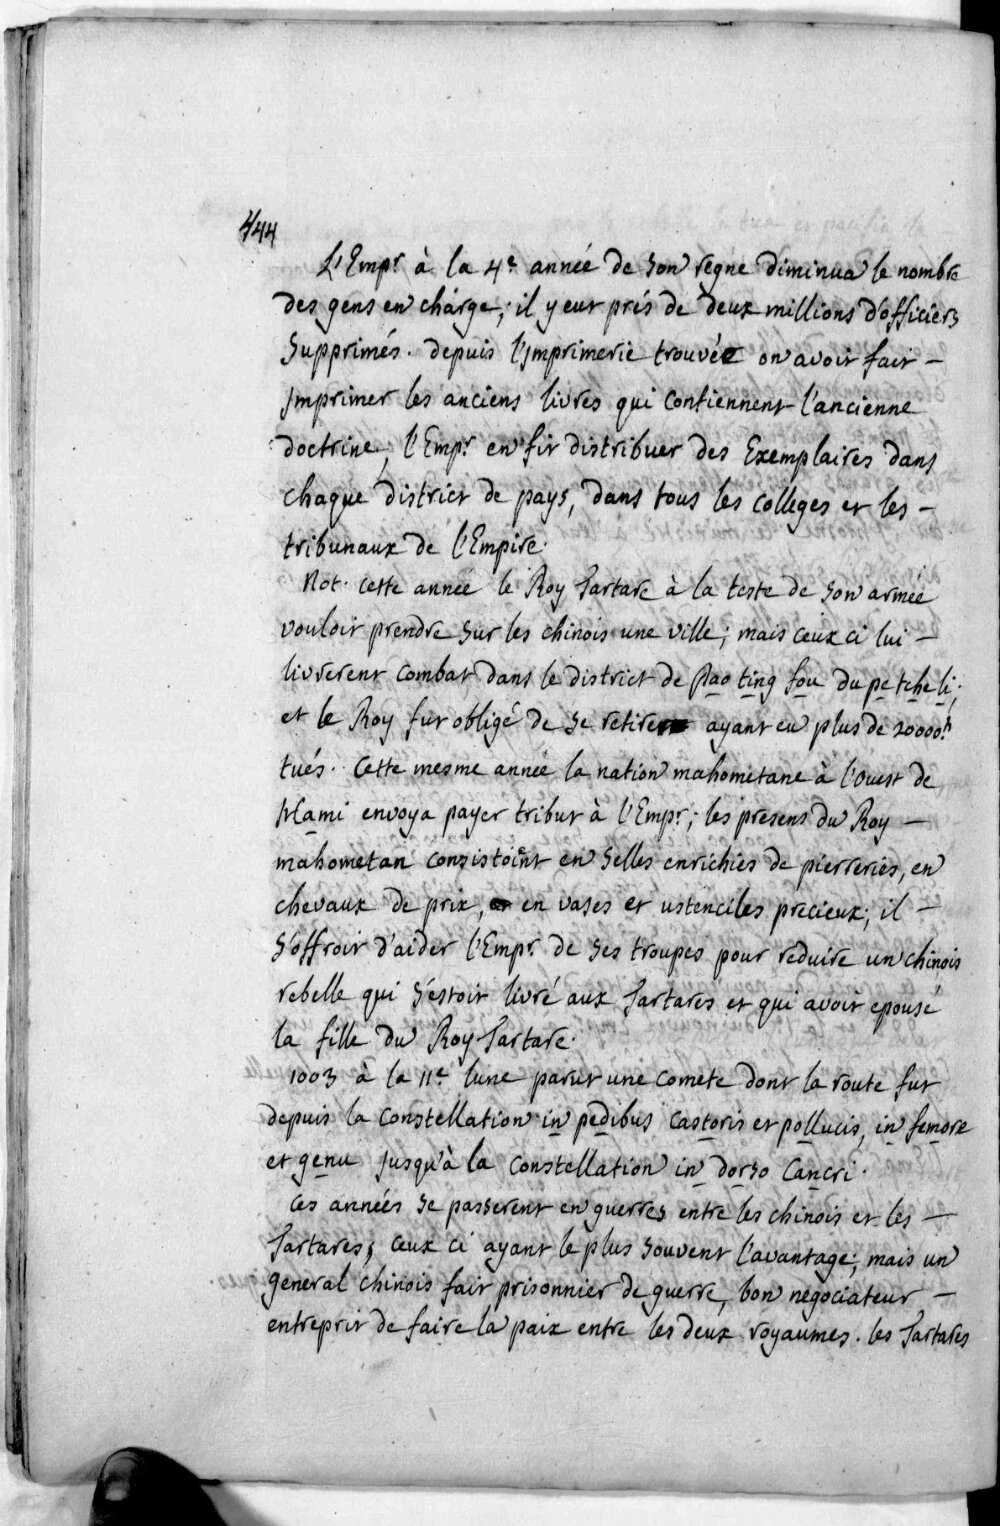 444
L'Emp.r à la 4.e année de son regne diminua le nombre
des gens en charge; il y eut prés de deux millions d'officiers
supprimés. depuis l'jmprimerie trouvée on avoit fait –
jmprimer les anciens livres qui contiennent l'ancienne
doctrine; l'Emp.r en fit distribuer des Exemplaires dans
chaque district de pays, dans tous les colleges et les –
tribunaux de l'Empire.
Not. cette année le Roy Tartare à la teste de son armée
vouloit prendre sur les chinois une ville; mais ceux ci lui –
livrerent combat dans le district de Pao ting fou du pe tche li;
et le Roy fut obligé de se retirer ayant eu plus de 20000.h
tués. Cette mesme année la nation mahometane à l'ouest de
Hami envoya payer tribut à l'Emp.r; les presens du Roy –
mahometan consistoient en selles enrichies de pierreries, en
chevaux de prix, en vases et ustenciles precieux; il –
s'offroit d'aider l'Emp.r de ses troupes pour reduire un chinois
rebelle qui s'estoit livré aux Tartares et qui avoit epousé
la fille du Roy Tartare.
1003 à la 11.e lune parut une comete dont la route fut
depuis la constellation in pedibus castoris et pollucis, in femore
et genu jusqu'à la constellation in dorso Cancri.
Ces années se passerent en guerres entre les chinois et les –
Tartares, ceux ci ayant le plus souvent l'avantage; mais un
general chinois fait prisonnier de guerre, bon negociateur –
entreprit de faire la paix entre les deux royaumes. les Tartares